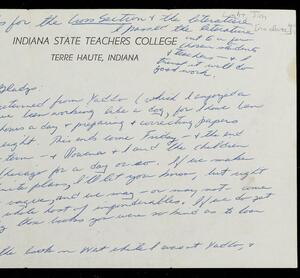 s for the Cross Section & the literature.
I passed the literature
on to a few
chosen students
& teachers — & I
trust it will do
good work.
INDIANA STATE TEACHERS COLLEGE
TERRE HAUTE, INDIANA
Gladys
returned from Yaddo (which I enjoyed a
been working like a dog, for I now
hours a day & preparing & correcting papers
night. This ends come Friday — & the end
term — & Roxana & I and the children
Chicago for a day or so. If we make
plans, I'll let you know, but right
vague, and we may — or may not — come
whole host of imponderables. If we do get
those books you were so kind as to loan
the book on Wat while I was at Yaddo, &